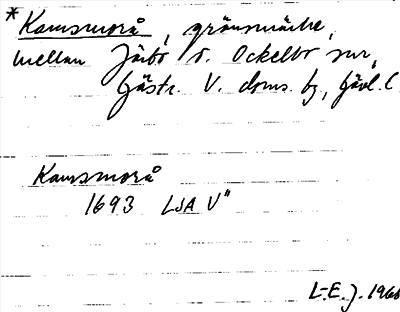 *Kamsmorå, gränsmärke,
mellan Järbo o. Ockelbo snr,
Gästr. V. doms. bg, Gävl. l.
Kamsmorå
1693 LSA V"
L-E. J. 1966